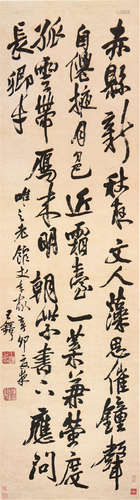 赤縣新秋夜文人藻思催鐘聲
自僊掖月色近霜臺一葉兼螢度
孤雲帶鴈來明朝紫書下應問
長卿才
唯之老館丈
辛卯
王鐸